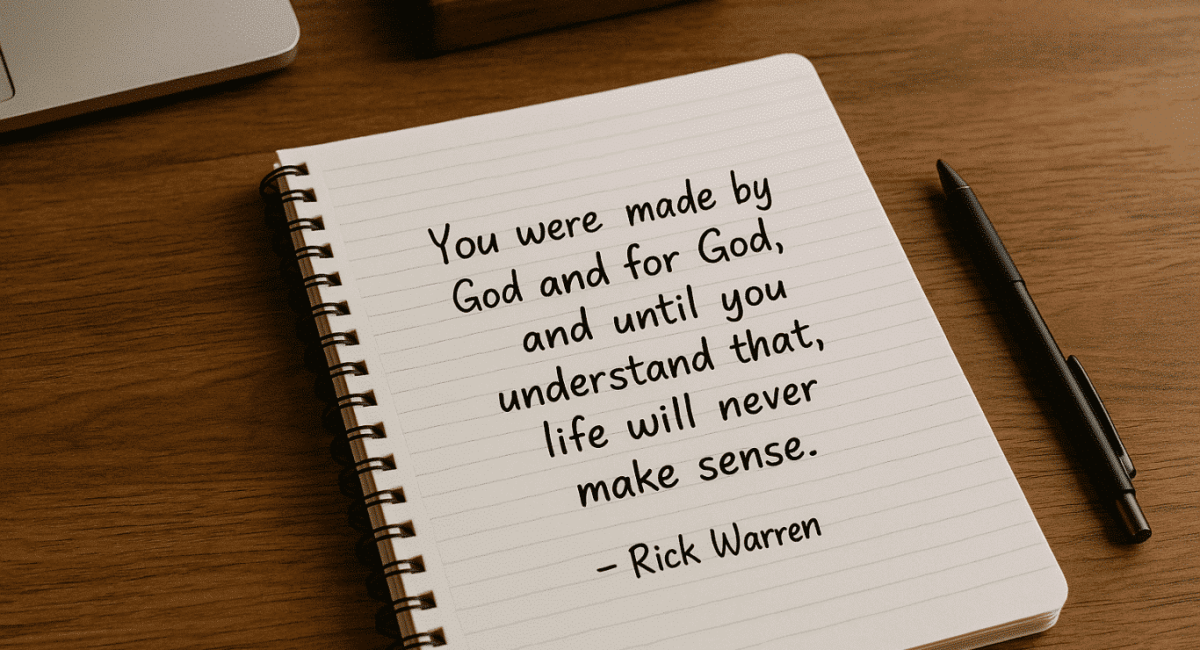 You were made by
God and for God,
and until you
understand that,
life will never
make sense.
– Rick Warren